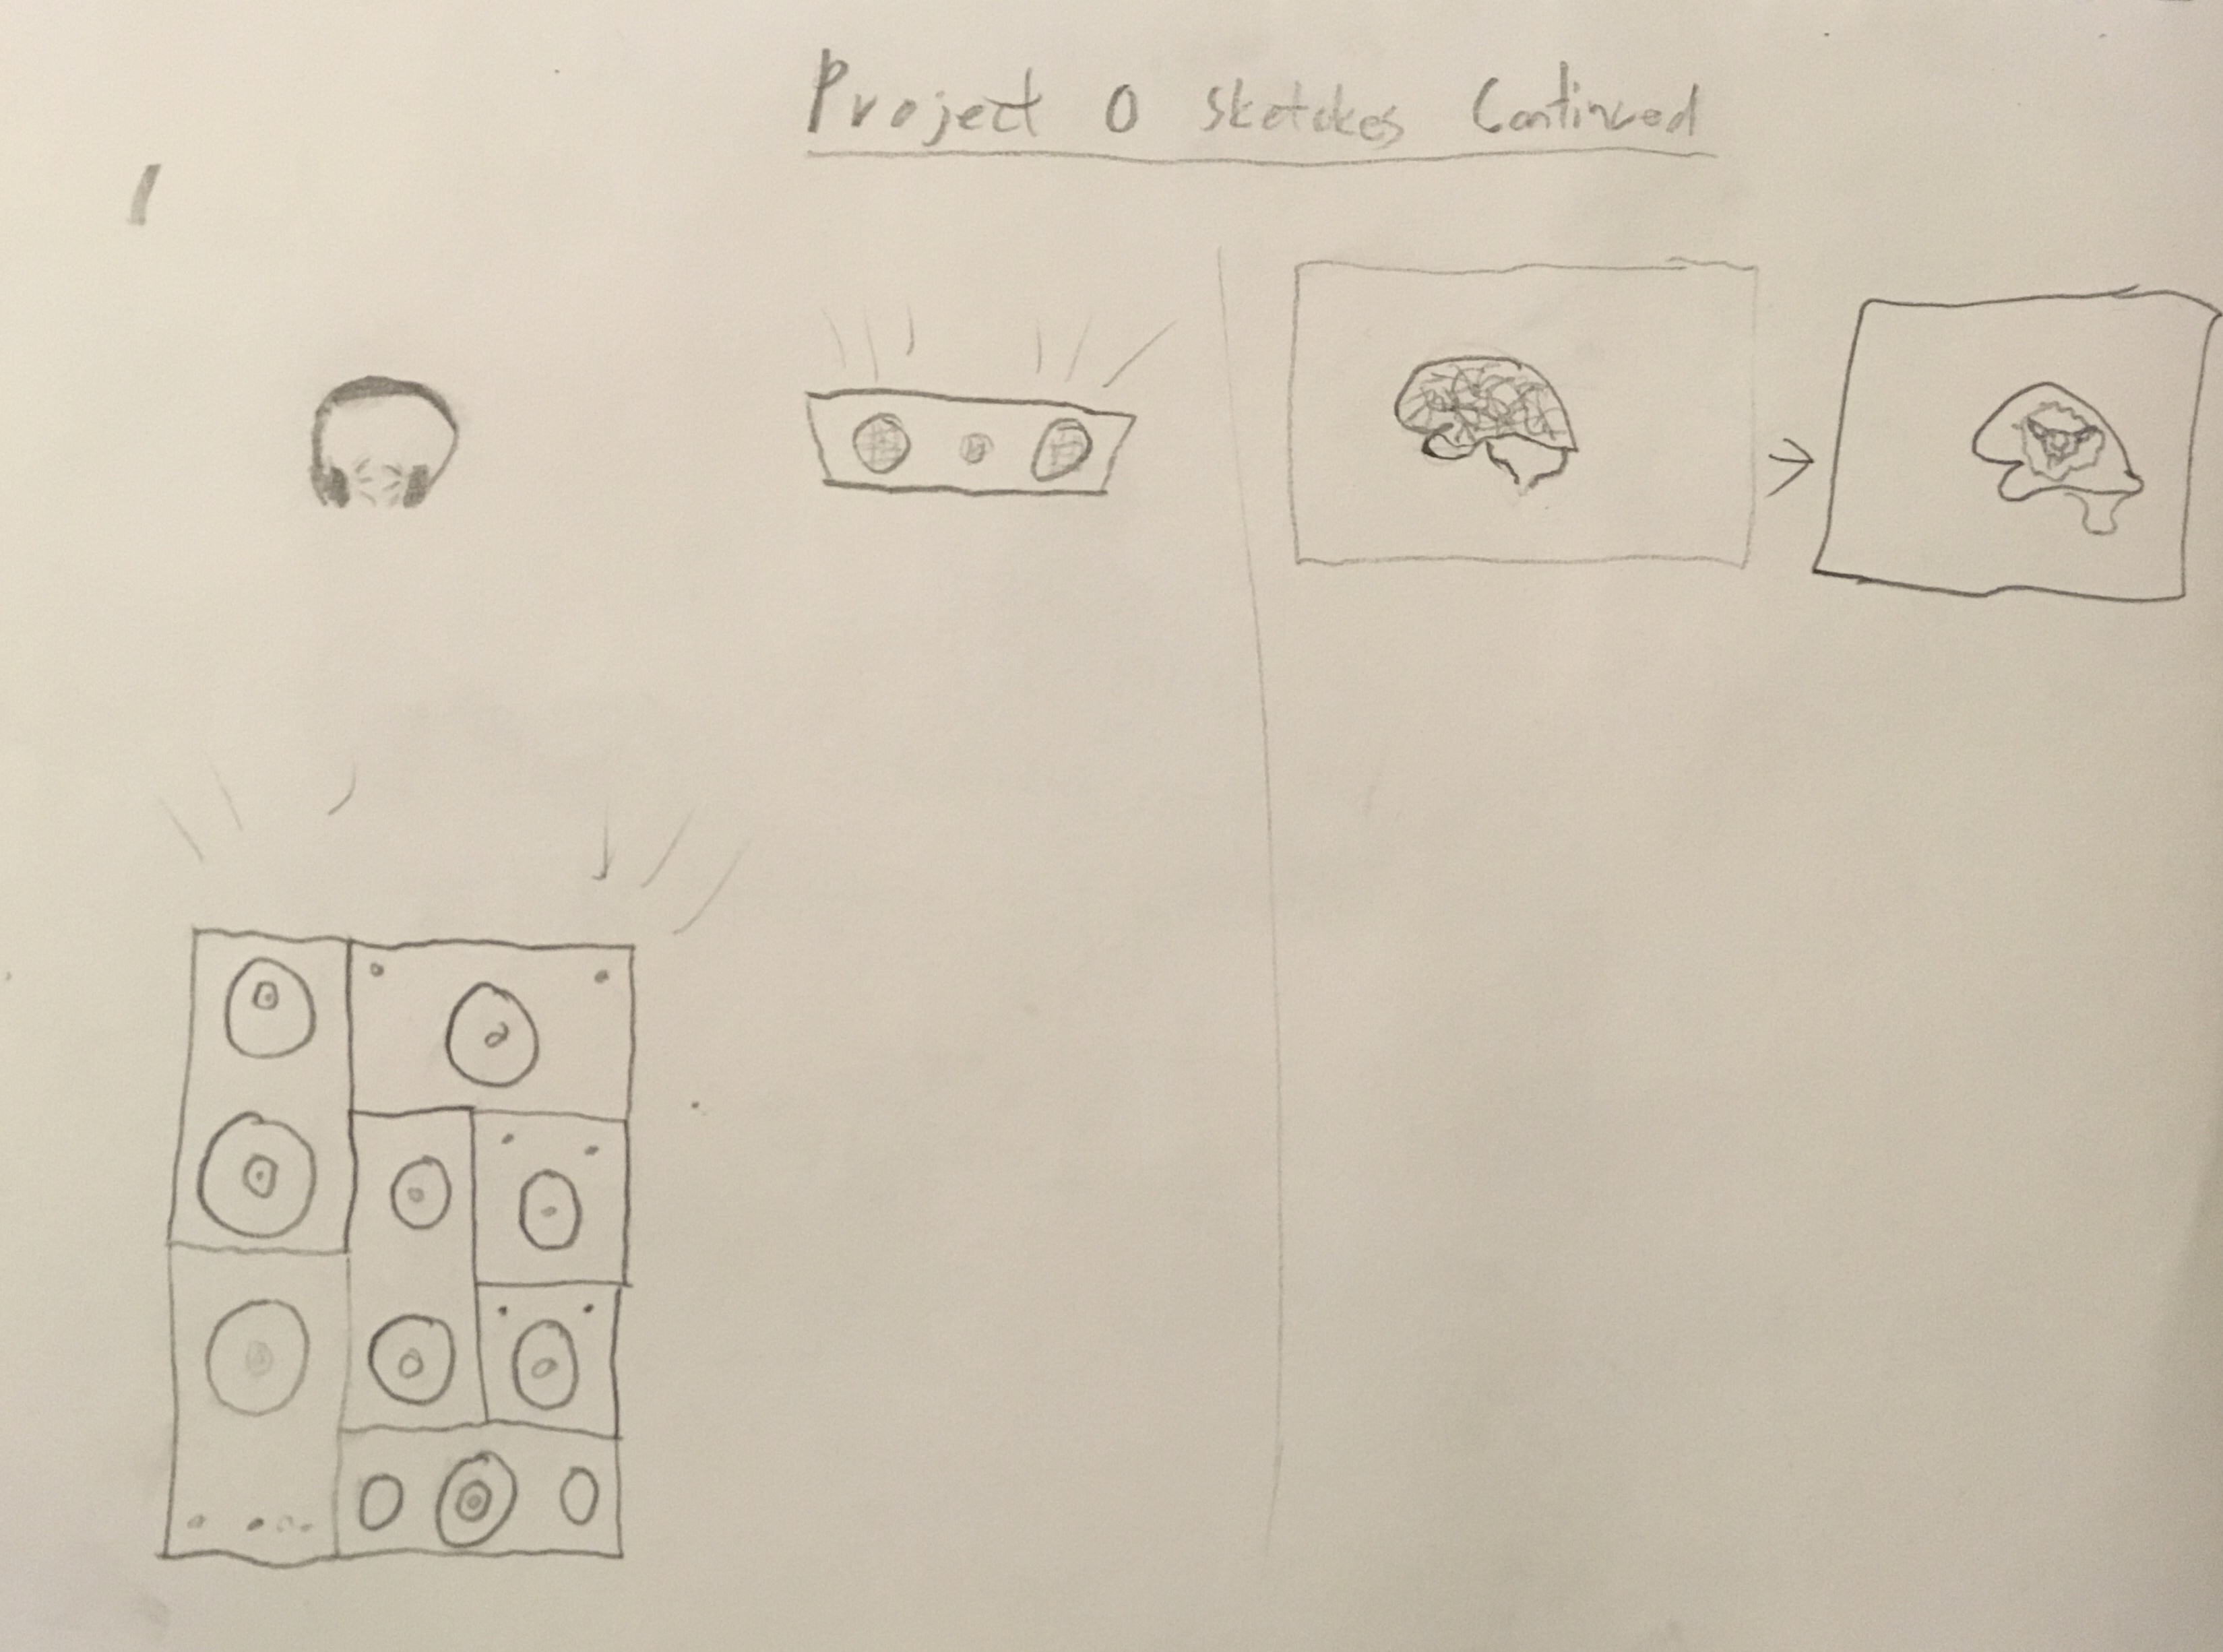 Project 0 Sketckes Continued
1